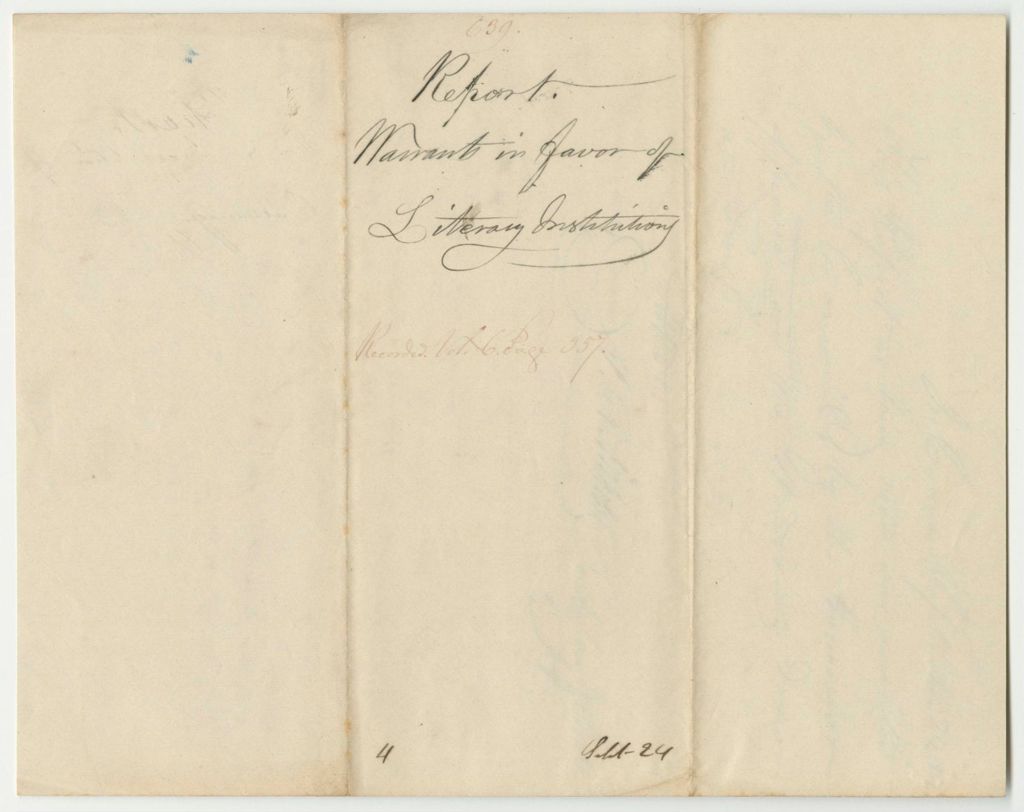 639.
Report.
Warrants in favor of
Literary Institutions
Recorded. Vol. 6. Page 357.
4 Sept-24